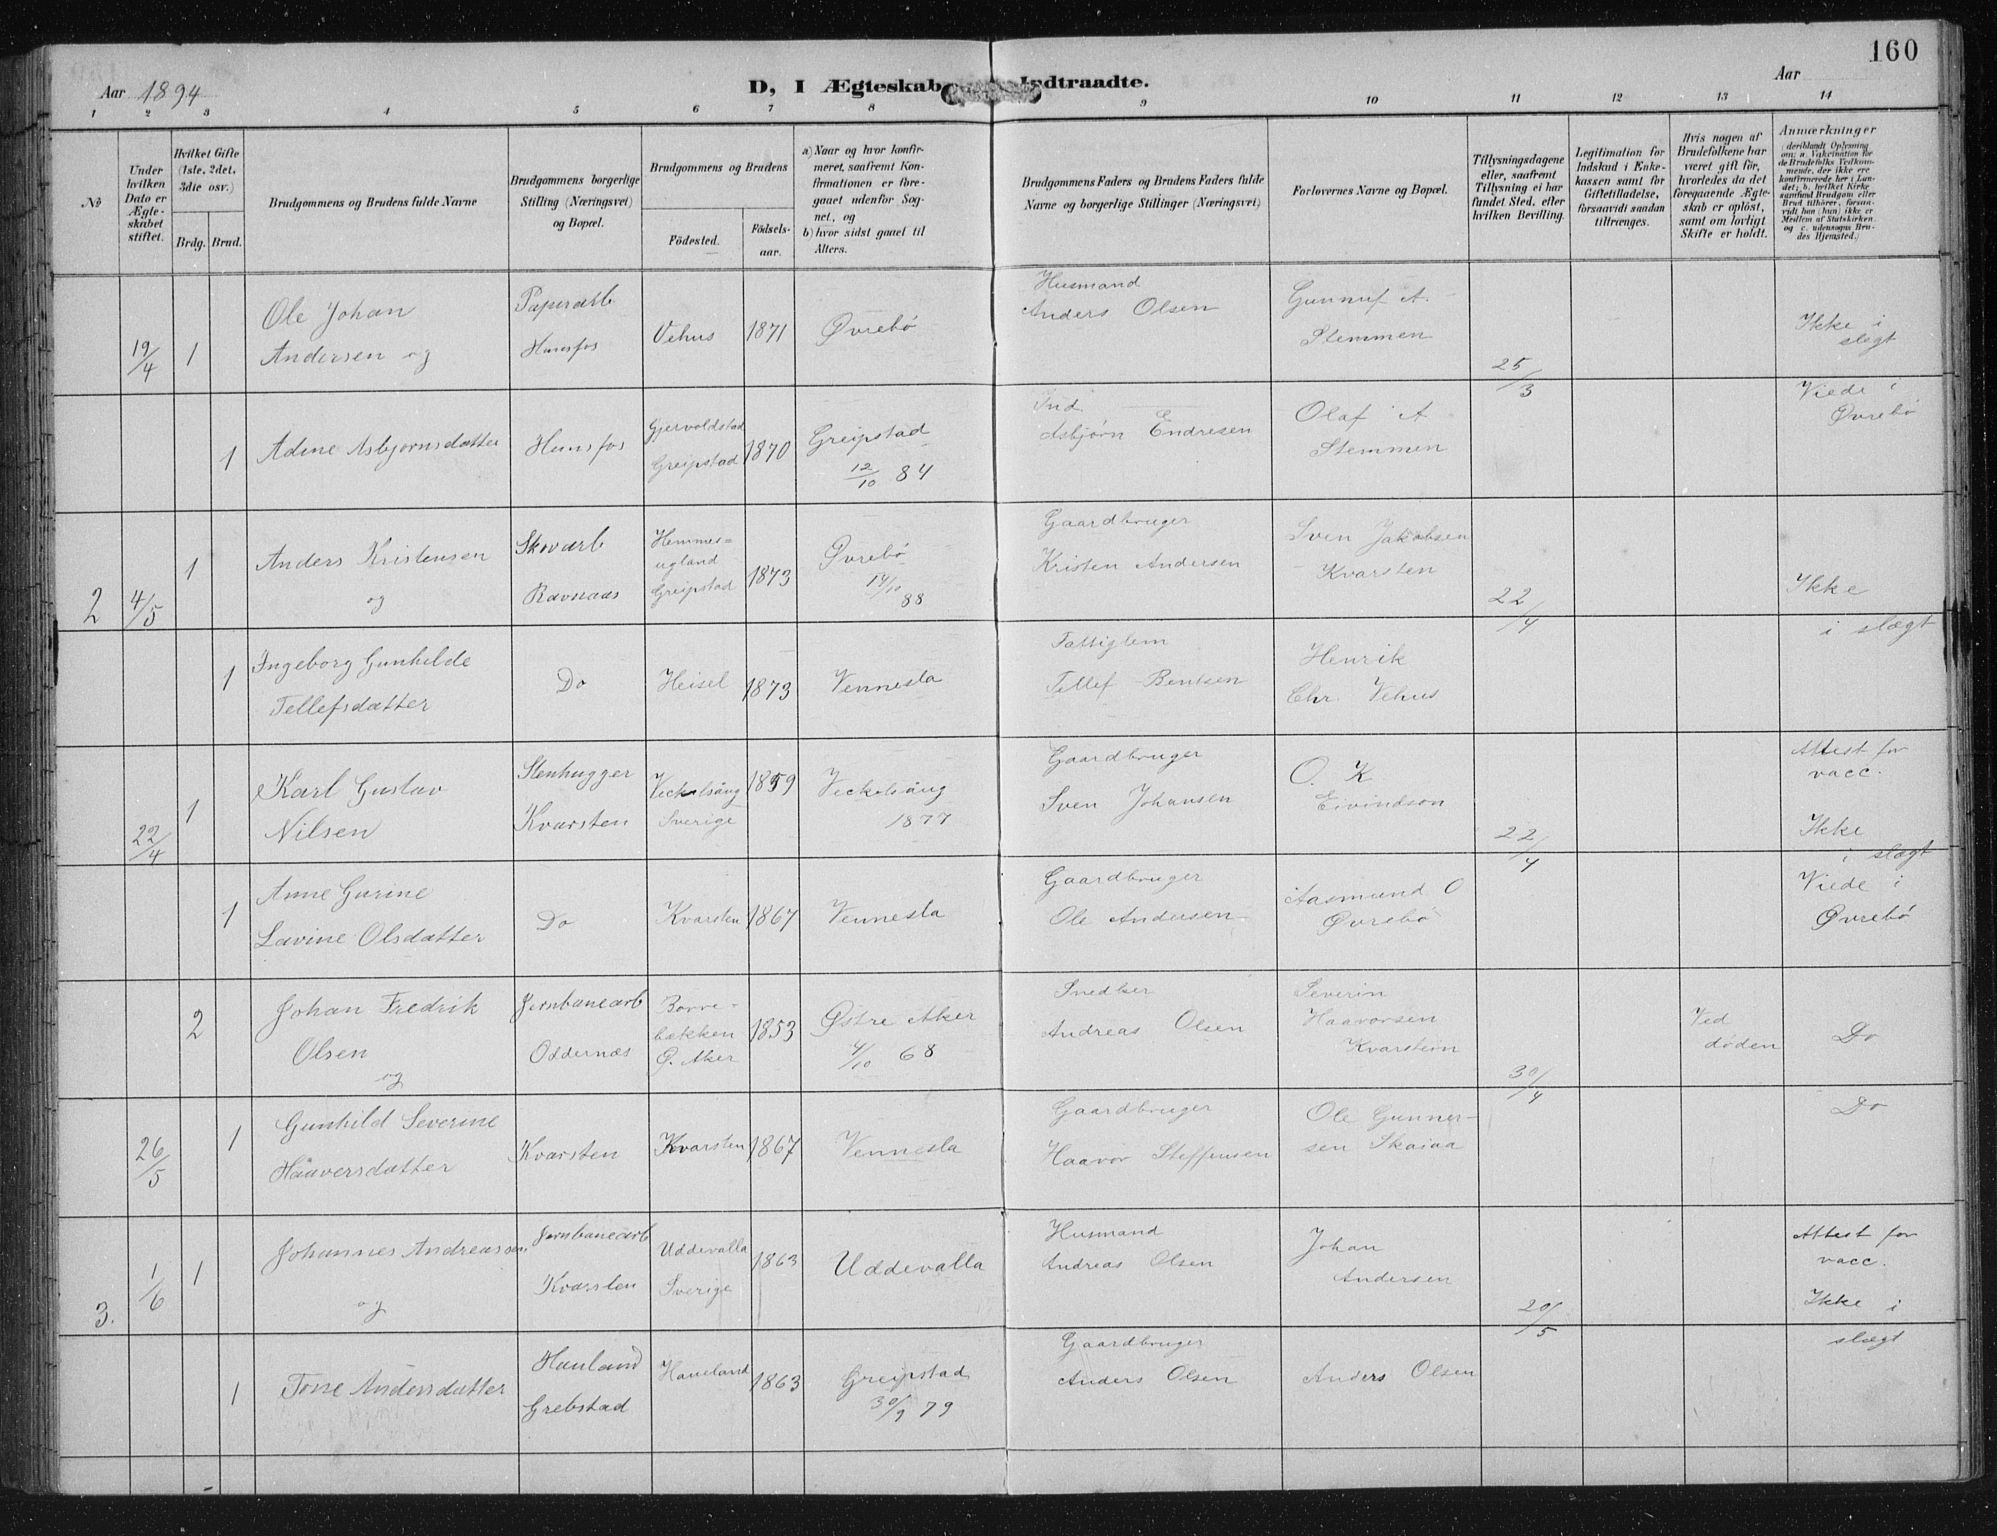 160
Aar 1894
D, I Ægteskab Indtraadte.
Aar
1 2 3 4 5 6 7 8 9 10 11 12 13 14
No
Under hvilken Dato er Ægteskabet stiftet.
Hvilket Gifte (1ste, 2det, 3die osv.)
Brdg. Brud.
Brudgommens og Brudens fulde Navne
Brudgommens borgerlige Stilling (Næringsvei) og Bopæl.
Brudgommens og Brudens
Födested.
Födsels-aar.
a) Naar og hvor konfirmeret, saafremt Konfirmationen er foregaaet udenfor Sognet, og
b) hvor sidst gaaet til Alters.
Brudgommens Faders og Brudens Faders fulde Navne og borgerlige Stillinger (Næringsvei)
Forlovernes Navne og Bopæl.
Tillysningsdagene eller, saafremt Tillysning ei har fundet Sted, efter hvilken Bevilling.
Legitimation for Indskud i Enkekassen samt for Giftetilladelse, forsaavidt saadan tiltrænges.
Hvis nogen af Brudefolkene har været gift för, hvorledes da det foregaaende Ægteskab er oplöst, samt om lovligt Skifte er holdt.
Anmærkninger
(deriblandt Oplysning om: a. Vakcination for de Brudefolks Vedkommende, der ikke ere konfirmerede her i Landet; b. hvilket Kirkesamfund Brudgom eller Brud tilhörer, forsaavidt han (hun) ikke er Medlem af Statskirken, og c. udensogns Brudes Hjemsted.)
19/4 1 Ole Johan Andersen og
Paperarb Hunsfos
Vehus 1871 Øvrebö
Husmand Anders Olsen
Gunnuf A. Stemmen
25/3
Ikke i slegt
1 Adine Asbjornsdatter
Hunsfos
Gjervoldstad Greipstad 1870
Greipstad 12/10 84
Ind. Asbjørn Endresen
Olaf A Stemmen
Viede i Øvrebö
2 4/5 1 Anders Kristensen og
Skovarb Ravnaas
Hemmesugland Greipstad 1873
Øvrebö 14/10 88
Gaardbruger Kristen Andersen
Sven Jakobsen Kvarsten
22/4
Ikke i slægt
1 Ingeborg Gunhilde Tellefsdatter
Do Heisel 1873 Vennesla
Fattiglem Tellef Bentsen
Henrik Chr. Vehus
22/4 1 Karl Gustav Nilsen
Stenhugger Kvarsten
Veckelsång Sverige 1859
Veckelsång 1877
Gaardbruger Sven Johansen
O. K Eivindson
22/4
Attest for vacc. Ikke i slægt
1 Anne Gurine Lovine Olsdatter
Do Kvarsten 1867 Vennesla
Gaardbruger Ole Andersen
Aasmund O Øvrebö
Viede i Øvrebö
2 Johan Fredrik Olsen og
Jernbanearb Oddernæs
Borrebækken Ø. Aker 1853
Østre Aker 4/10 68
Snedker Andreas Olsen
Severin Haavorsen Kvarstein
30/4
Ved döden
Do
26/5 1 Gunhild Severine Haaversdatter
Kvarsten Kvarsten 1867 Vennesla
Gaardbruger Haavor Steffensen
Ole Gunnersen Skaiaa
Do
3. 1/6 1 Johannes Andreassen og
Jernbanearb Kvarsten
Uddevalla Sverige 1863 Uddevalla
Husmand Andreas Olsen
Johan Andersen
20/5
Attest for vacc. Ikke i slægt
1 Tone Andersdatter
Hauland Grebstad
Haueland 1863
Greipstad 30/9 79
Gaardbruger Anders Olsen
Anders Olsen